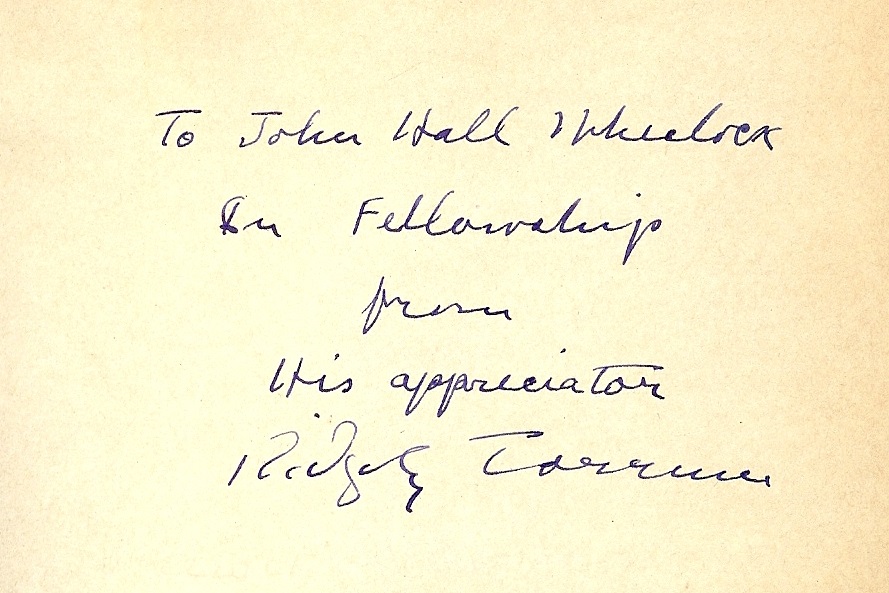 To John Hall Wheelock
In Fellowship
from
His appreciator
Ridgely Torrence